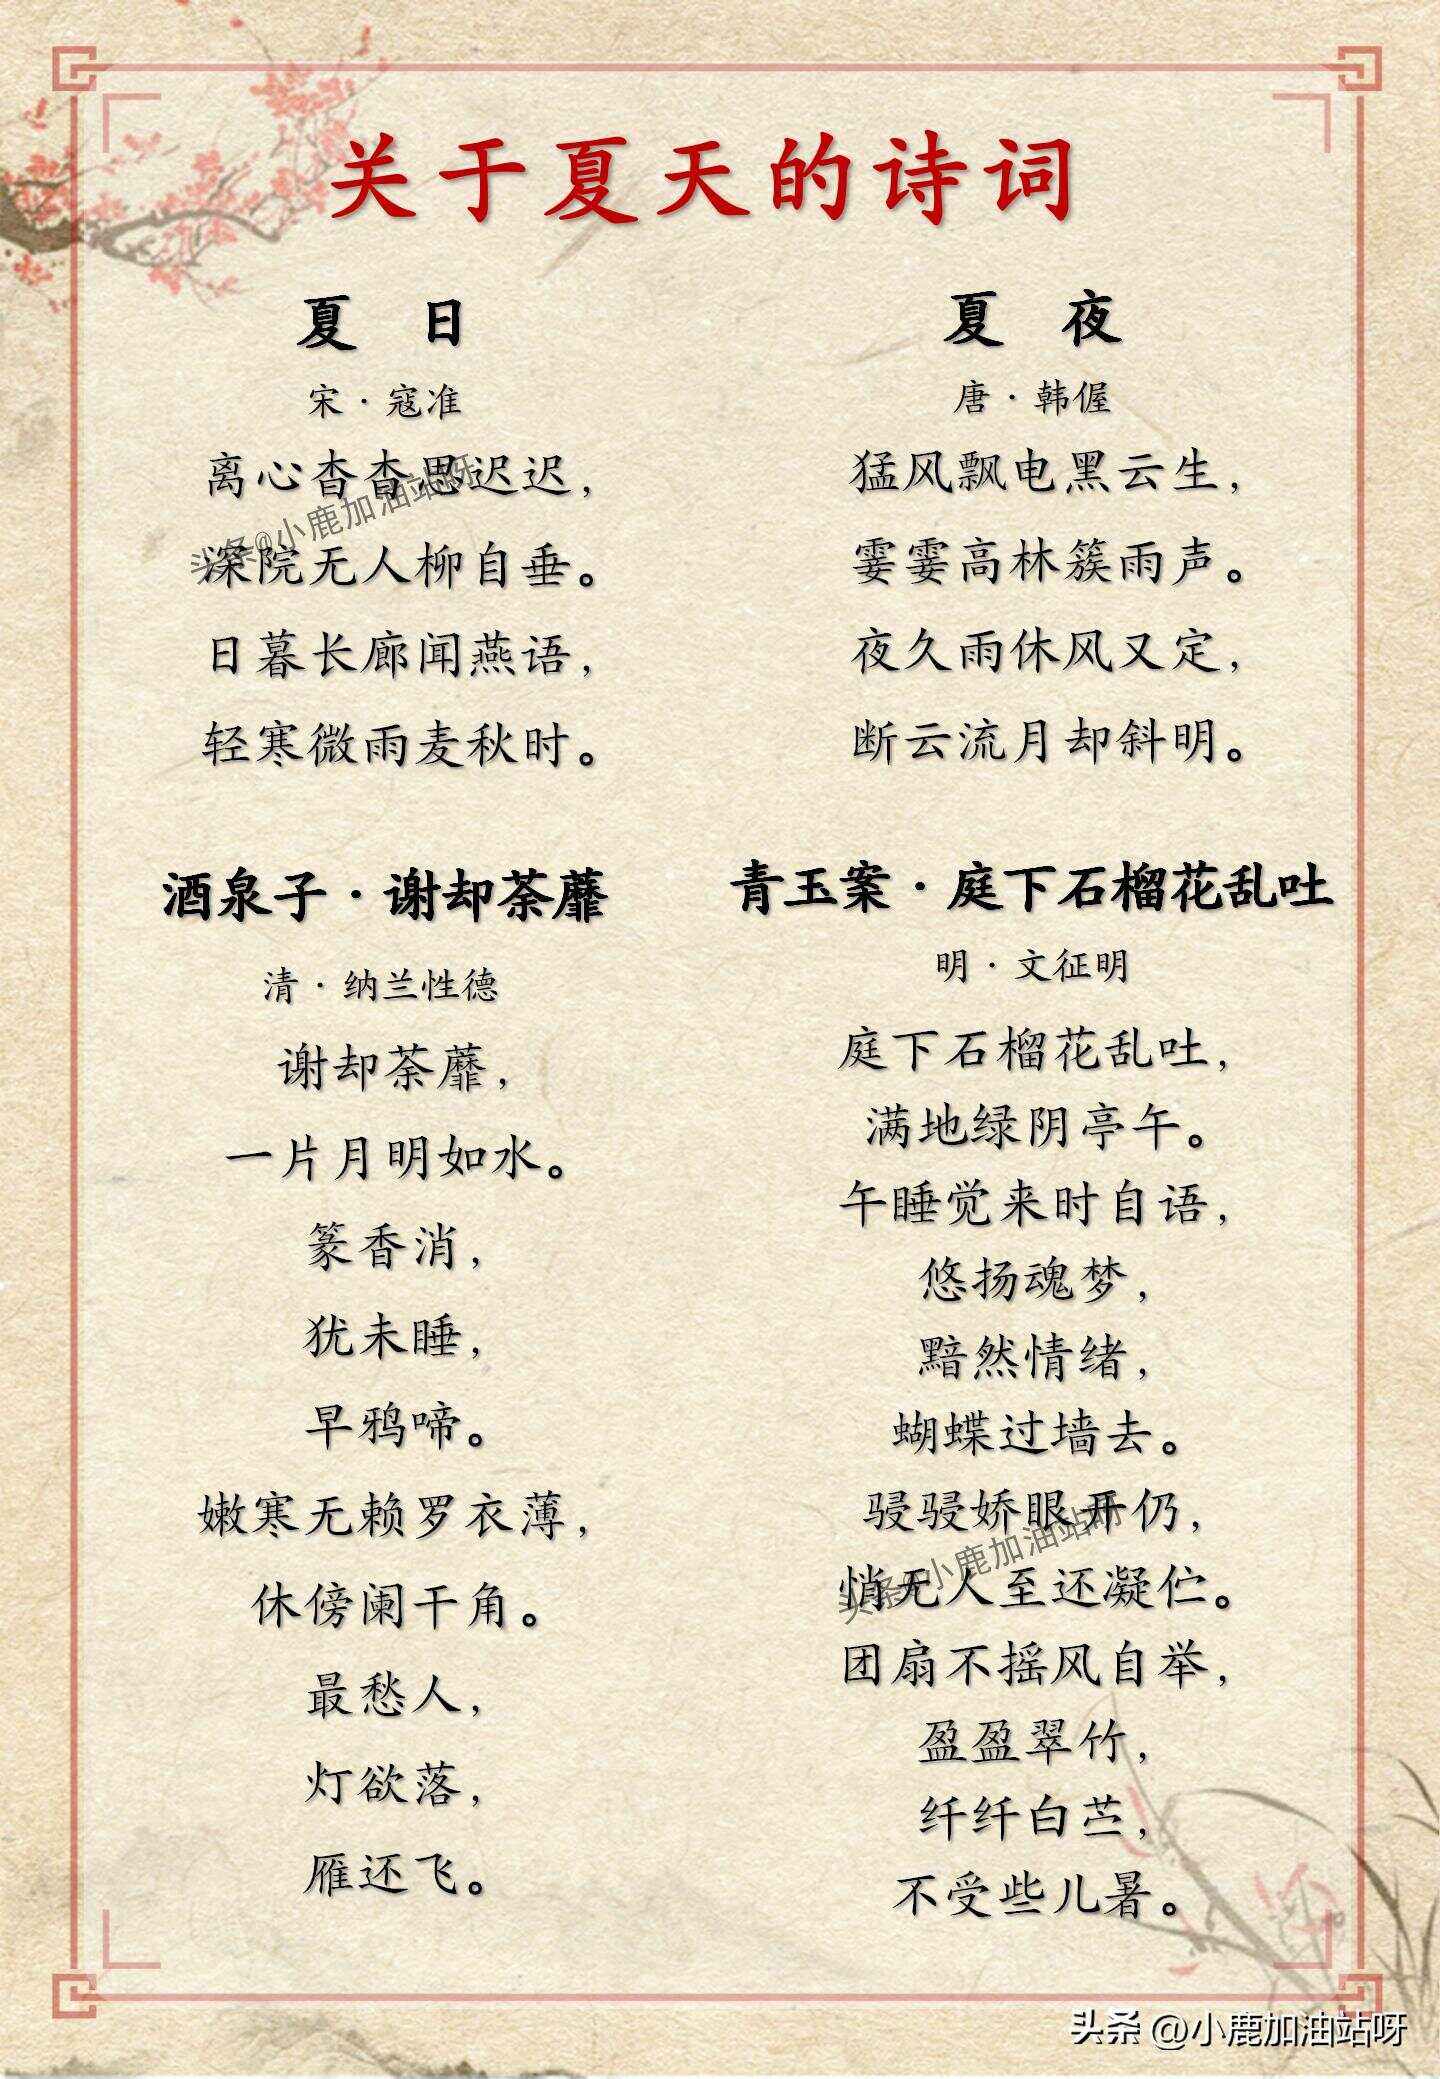 关于夏天的诗词
夏 日
宋·寇准
离心杳杳思迟迟，
深院无人柳自垂。
日暮长廊闻燕语，
轻寒微雨麦秋时。
夏 夜
唐·韩偓
猛风飘电黑云生，
霎霎高林簇雨声。
夜久雨休风又定，
断云流月却斜明。
酒泉子·谢却荼蘼
清·纳兰性德
谢却荼蘼，
一片月明如水。
篆香消，
犹未睡，
早鸦啼。
嫩寒无赖罗衣薄，
休傍阑干角。
最愁人，
灯欲落，
雁还飞。
青玉案·庭下石榴花乱吐
明·文征明
庭下石榴花乱吐，
满地绿阴亭午。
午睡觉来时自语，
悠扬魂梦，
黯然情绪，
蝴蝶过墙去。
骎骎娇眼开仍，
悄无人至还凝伫。
团扇不摇风自举，
盈盈翠竹，
纤纤白苎，
不受些儿暑。
头条@小鹿加油站呀
头条@小鹿加油站呀
头条 @小鹿加油站呀